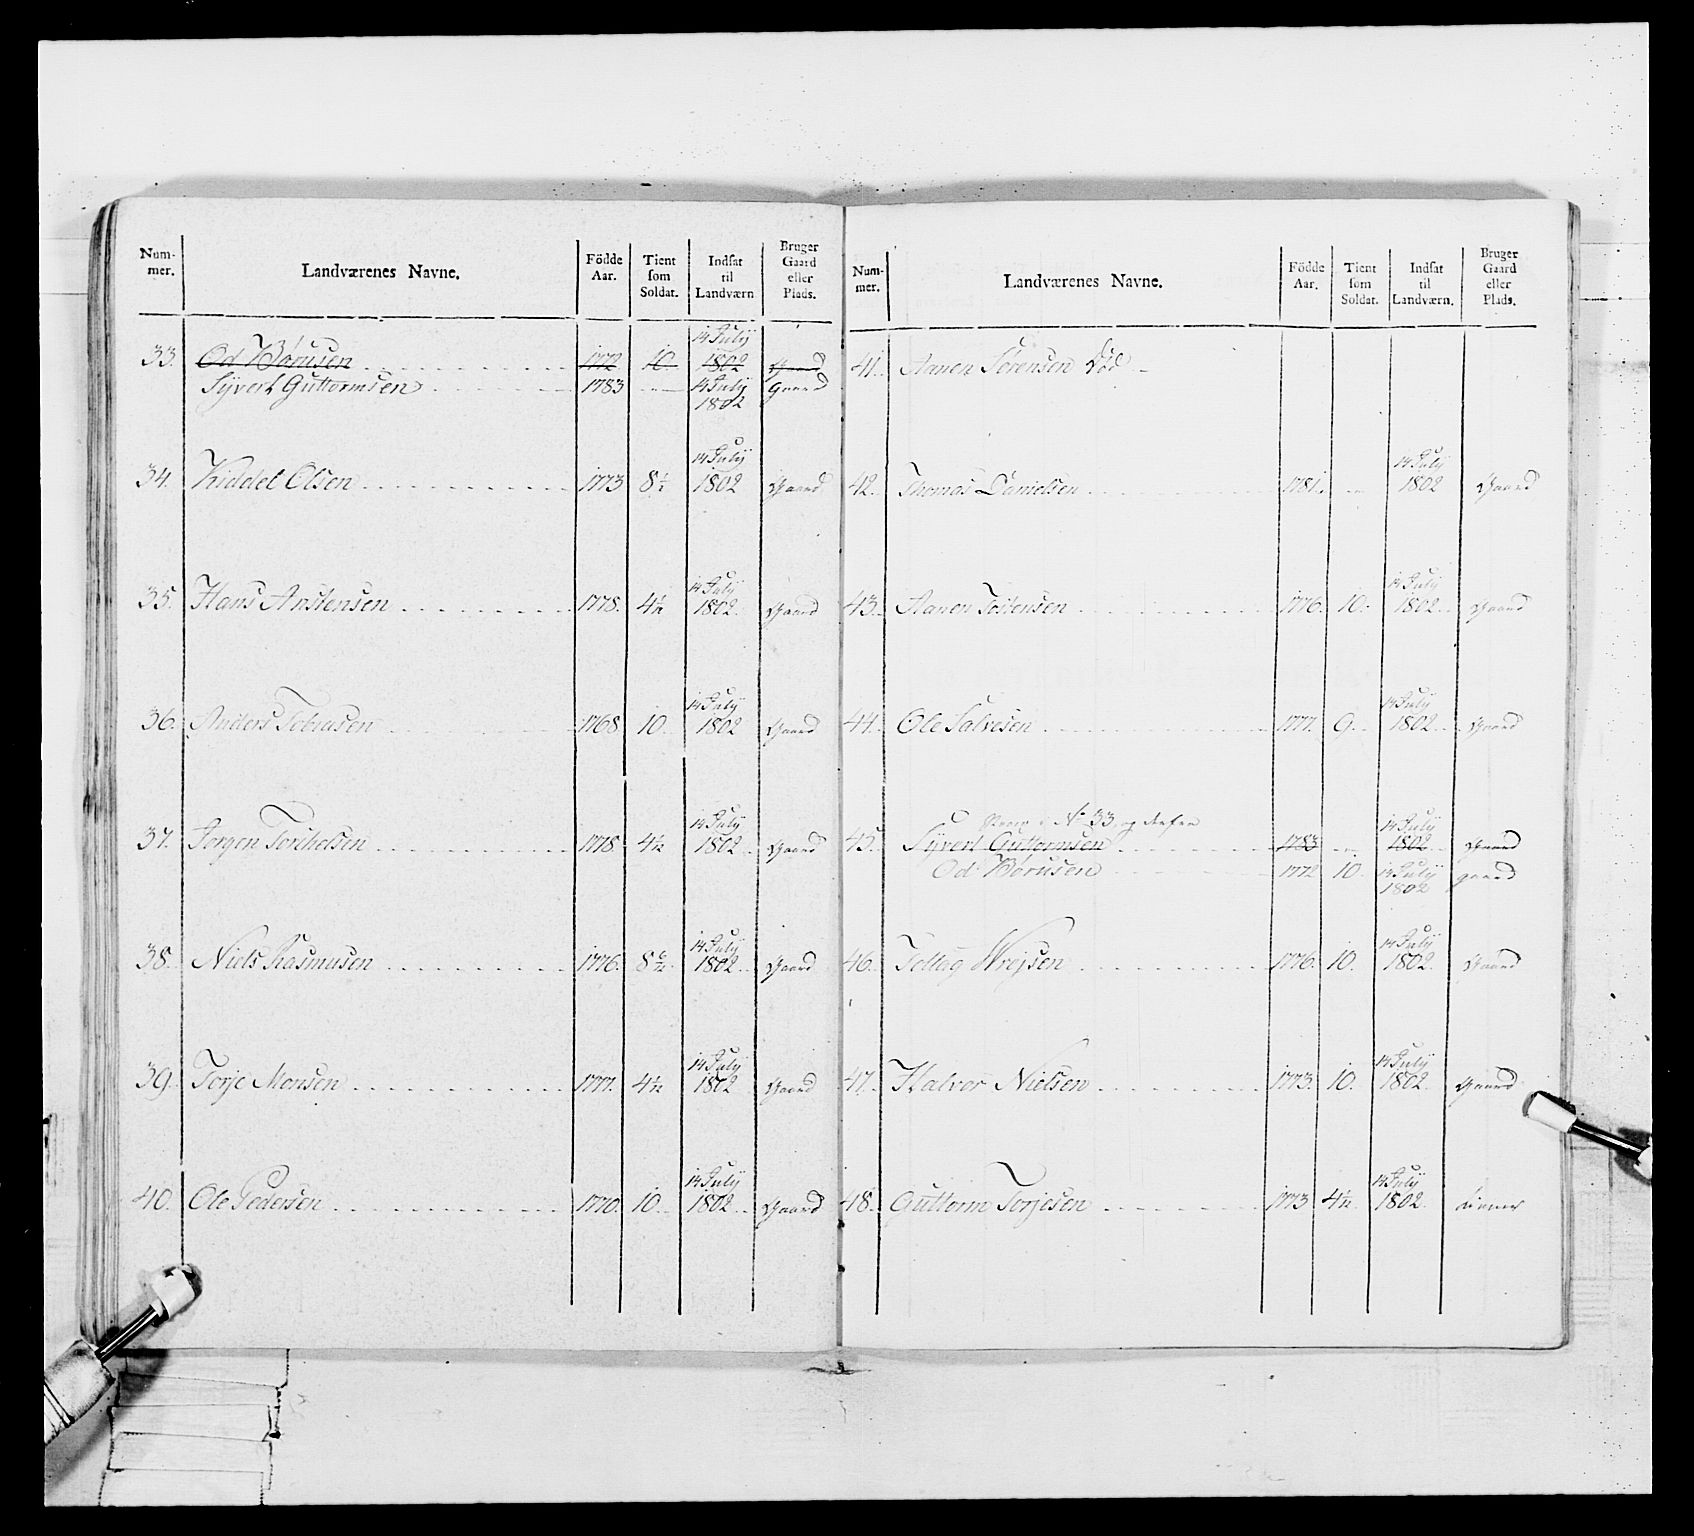 Num-mer. Landværenes Navne. Födde Aar. Tient som Soldat. Indsat til Landværn Bruger Gaard eller Plads.
33. Od Börusen 1772 10. 14 July 1802 Gaard
Syvert Guttormsen 1783 14 July 1802 Gaard
34. Kiddel Olsen 1773 8½ 14 July 1802 Gaard
35. Hans Arstensen 1778. 4½ 14 July 1802. Gaard
36. Anders Tobiasen 1768 10. 14 July 1802 Gaard
37. Jörgen Torkelsen 1778. 4½ 14 July 1802. Gaard
38. Niels Rasmusen 1776. 8 14 July 1802. Gaard
39. Torje Monsen 1777. 4½ 14 July 1802 Gaard
40. Ole Pedersen 1770. 10. 14 July 1802. Gaard
Num-mer. Landværenes Navne. Födde Aar. Tient som Soldat. Indsat til Landværn. Bruger Gaard eller Plads.
41. Aanen Sörensen Död
42. Thomas Danielsen 1781. 14 July 1802 Gaard
43. Aanen Tostensen 1776. 10. 14 July 1802. Gaard
44. Ole Salvesen 1777. 9. 14 July 1802. Gaard
No 33. og
45. Syvert Guttormsen 1783 14 July 1802 Gaard
Od Börusen 1772 10. 14 July 1802 gaard
46. Tellag Wrejsen 1776. 10. 14 July 1802. Gaard
47. Halvor Nielsen 1773. 10. 14 July 1802. Gaard
48. Guttorm Torjesen 1773 4½ 14 July 1802.